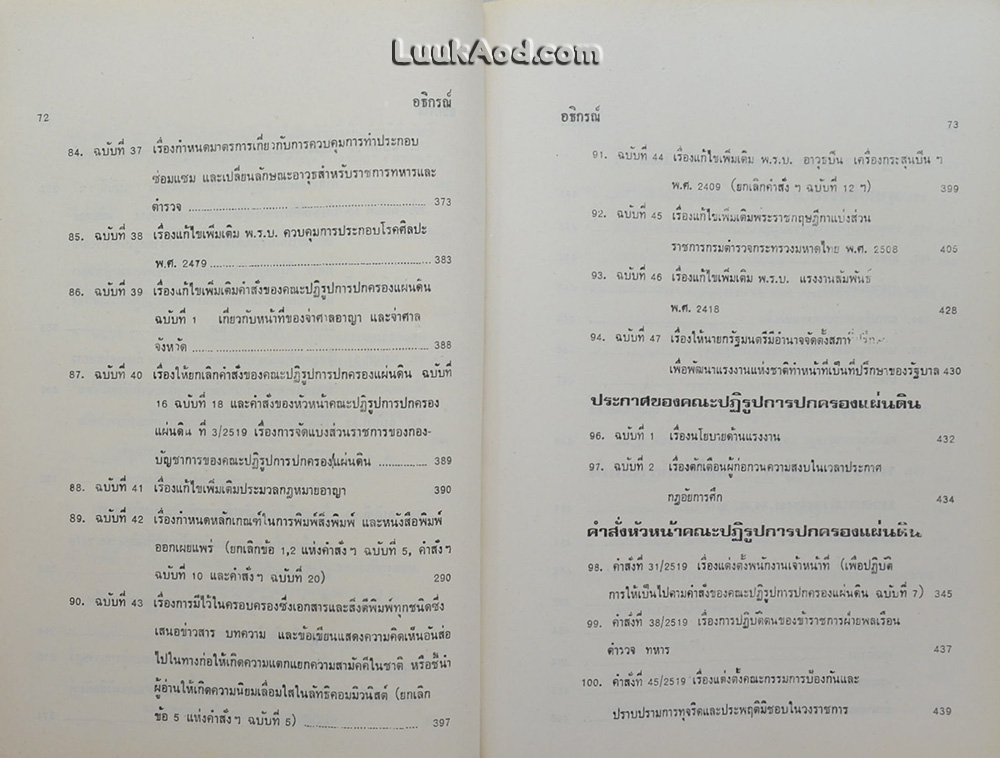 LuukAod.com
72
อธิกรณ์
84. ฉบับที่ 37 เรื่องกำหนดมาตรการเกี่ยวกับการควบคุมการทำประกอบ
ซ่อมแซม และเปลี่ยนลักษณะอาวุธสำหรับราชการทหารและ
ตำรวจ ........................................ 373
85. ฉบับที่ 38 เรื่องแก้ไขเพิ่มเติม พ.ร.บ. ควบคุมการประกอบโรคศิลปะ
พ.ศ. 2479 ........................................ 383
86. ฉบับที่ 39 เรื่องแก้ไขเพิ่มเติมคำสั่งของคณะปฏิรูปการปกครองแผ่นดิน
ฉบับที่ 1 เกี่ยวกับหน้าที่ของจ่าศาลอาญา และจ่าศาล
จังหวัด ........................................ 388
87. ฉบับที่ 40 เรื่องให้ยกเลิกคำสั่งของคณะปฏิรูปการปกครองแผ่นดิน ฉบับที่
16 ฉบับที่ 18 และคำสั่งของหัวหน้าคณะปฏิรูปการปกครอง
แผ่นดิน ที่ 3/2519 เรื่องการจัดแบ่งส่วนราชการของกอง-
บัญชาการของคณะปฏิรูปการปกครองแผ่นดิน ............... 389
88. ฉบับที่ 41 เรื่องแก้ไขเพิ่มเติมประมวลกฎหมายอาญา 390
89. ฉบับที่ 42 เรื่องกำหนดหลักเกณฑ์ในการพิมพ์สิ่งพิมพ์ และหนังสือพิมพ์
ออกเผยแพร่ (ยกเลิกข้อ 1,2 แห่งคำสั่งฯ ฉบับที่ 5, คำสั่งฯ
ฉบับที่ 10 และคำสั่งฯ ฉบับที่ 20) 290
90. ฉบับที่ 43 เรื่องการมีไว้ในครอบครองซึ่งเอกสารและสิ่งตีพิมพ์ทุกชนิดซึ่ง
เสนอข่าวสาร บทความ และข้อเขียนแสดงความคิดเห็นอันส่อ
ไปในทางก่อให้เกิดความแตกแยกความสามัคคีในชาติ หรือชี้นำ
ผู้อ่านให้เกิดความนิยมเลื่อมใสในลัทธิคอมมิวนิสต์ (ยกเลิก
ข้อ 5 แห่งคำสั่งฯ ฉบับที่ 5) ........................ 397
อธิกรณ์
73
91. ฉบับที่ 44 เรื่องแก้ไขเพิ่มเติม พ.ร.บ. อาวุธปืน เครื่องกระสุนปืน ฯ
พ.ศ. 2409 (ยกเลิกคำสั่ง ฯ ฉบับที่ 12 ฯ) 399
92. ฉบับที่ 45 เรื่องแก้ไขเพิ่มเติมพระราชกฤษฎีกาแบ่งส่วน
ราชการกรมตำรวจกระทรวงมหาดไทย พ.ศ. 2508 405
93. ฉบับที่ 46 เรื่องแก้ไขเพิ่มเติม พ.ร.บ. แรงงานสัมพันธ์
พ.ศ. 2418 428
94. ฉบับที่ 47 เรื่องให้นายกรัฐมนตรีมีอำนาจจัดตั้งสภาที่
เพื่อพัฒนาแรงงานแห่งชาติทำหน้าที่เป็นที่ปรึกษาของรัฐบาล 430
ประกาศของคณะปฏิรูปการปกครองแผ่นดิน
96. ฉบับที่ 1 เรื่องนโยบายด้านแรงงาน 432
97. ฉบับที่ 2 เรื่องตักเตือนผู้ก่อกวนความสงบในเวลาประกาศ
กฎอัยการศึก 434
คำสั่งหัวหน้าคณะปฏิรูปการปกครองแผ่นดิน
98. คำสั่งที่ 31/2519 เรื่องแต่งตั้งพนักงานเจ้าหน้าที่ (เพื่อปฏิบัติ
การให้เป็นไปตามคำสั่งของคณะปฏิรูปการปกครองแผ่นดิน ฉบับที่ 7) 345
99. คำสั่งที่ 38/2519 เรื่องการปฏิบัติตนของข้าราชการฝ่ายพลเรือน
ตำรวจ ทหาร 437
100. คำสั่งที่ 45/2519 เรื่องแต่งตั้งคณะกรรมการป้องกันและ
ปราบปรามการทุจริตและประพฤติมิชอบในวงราชการ 439